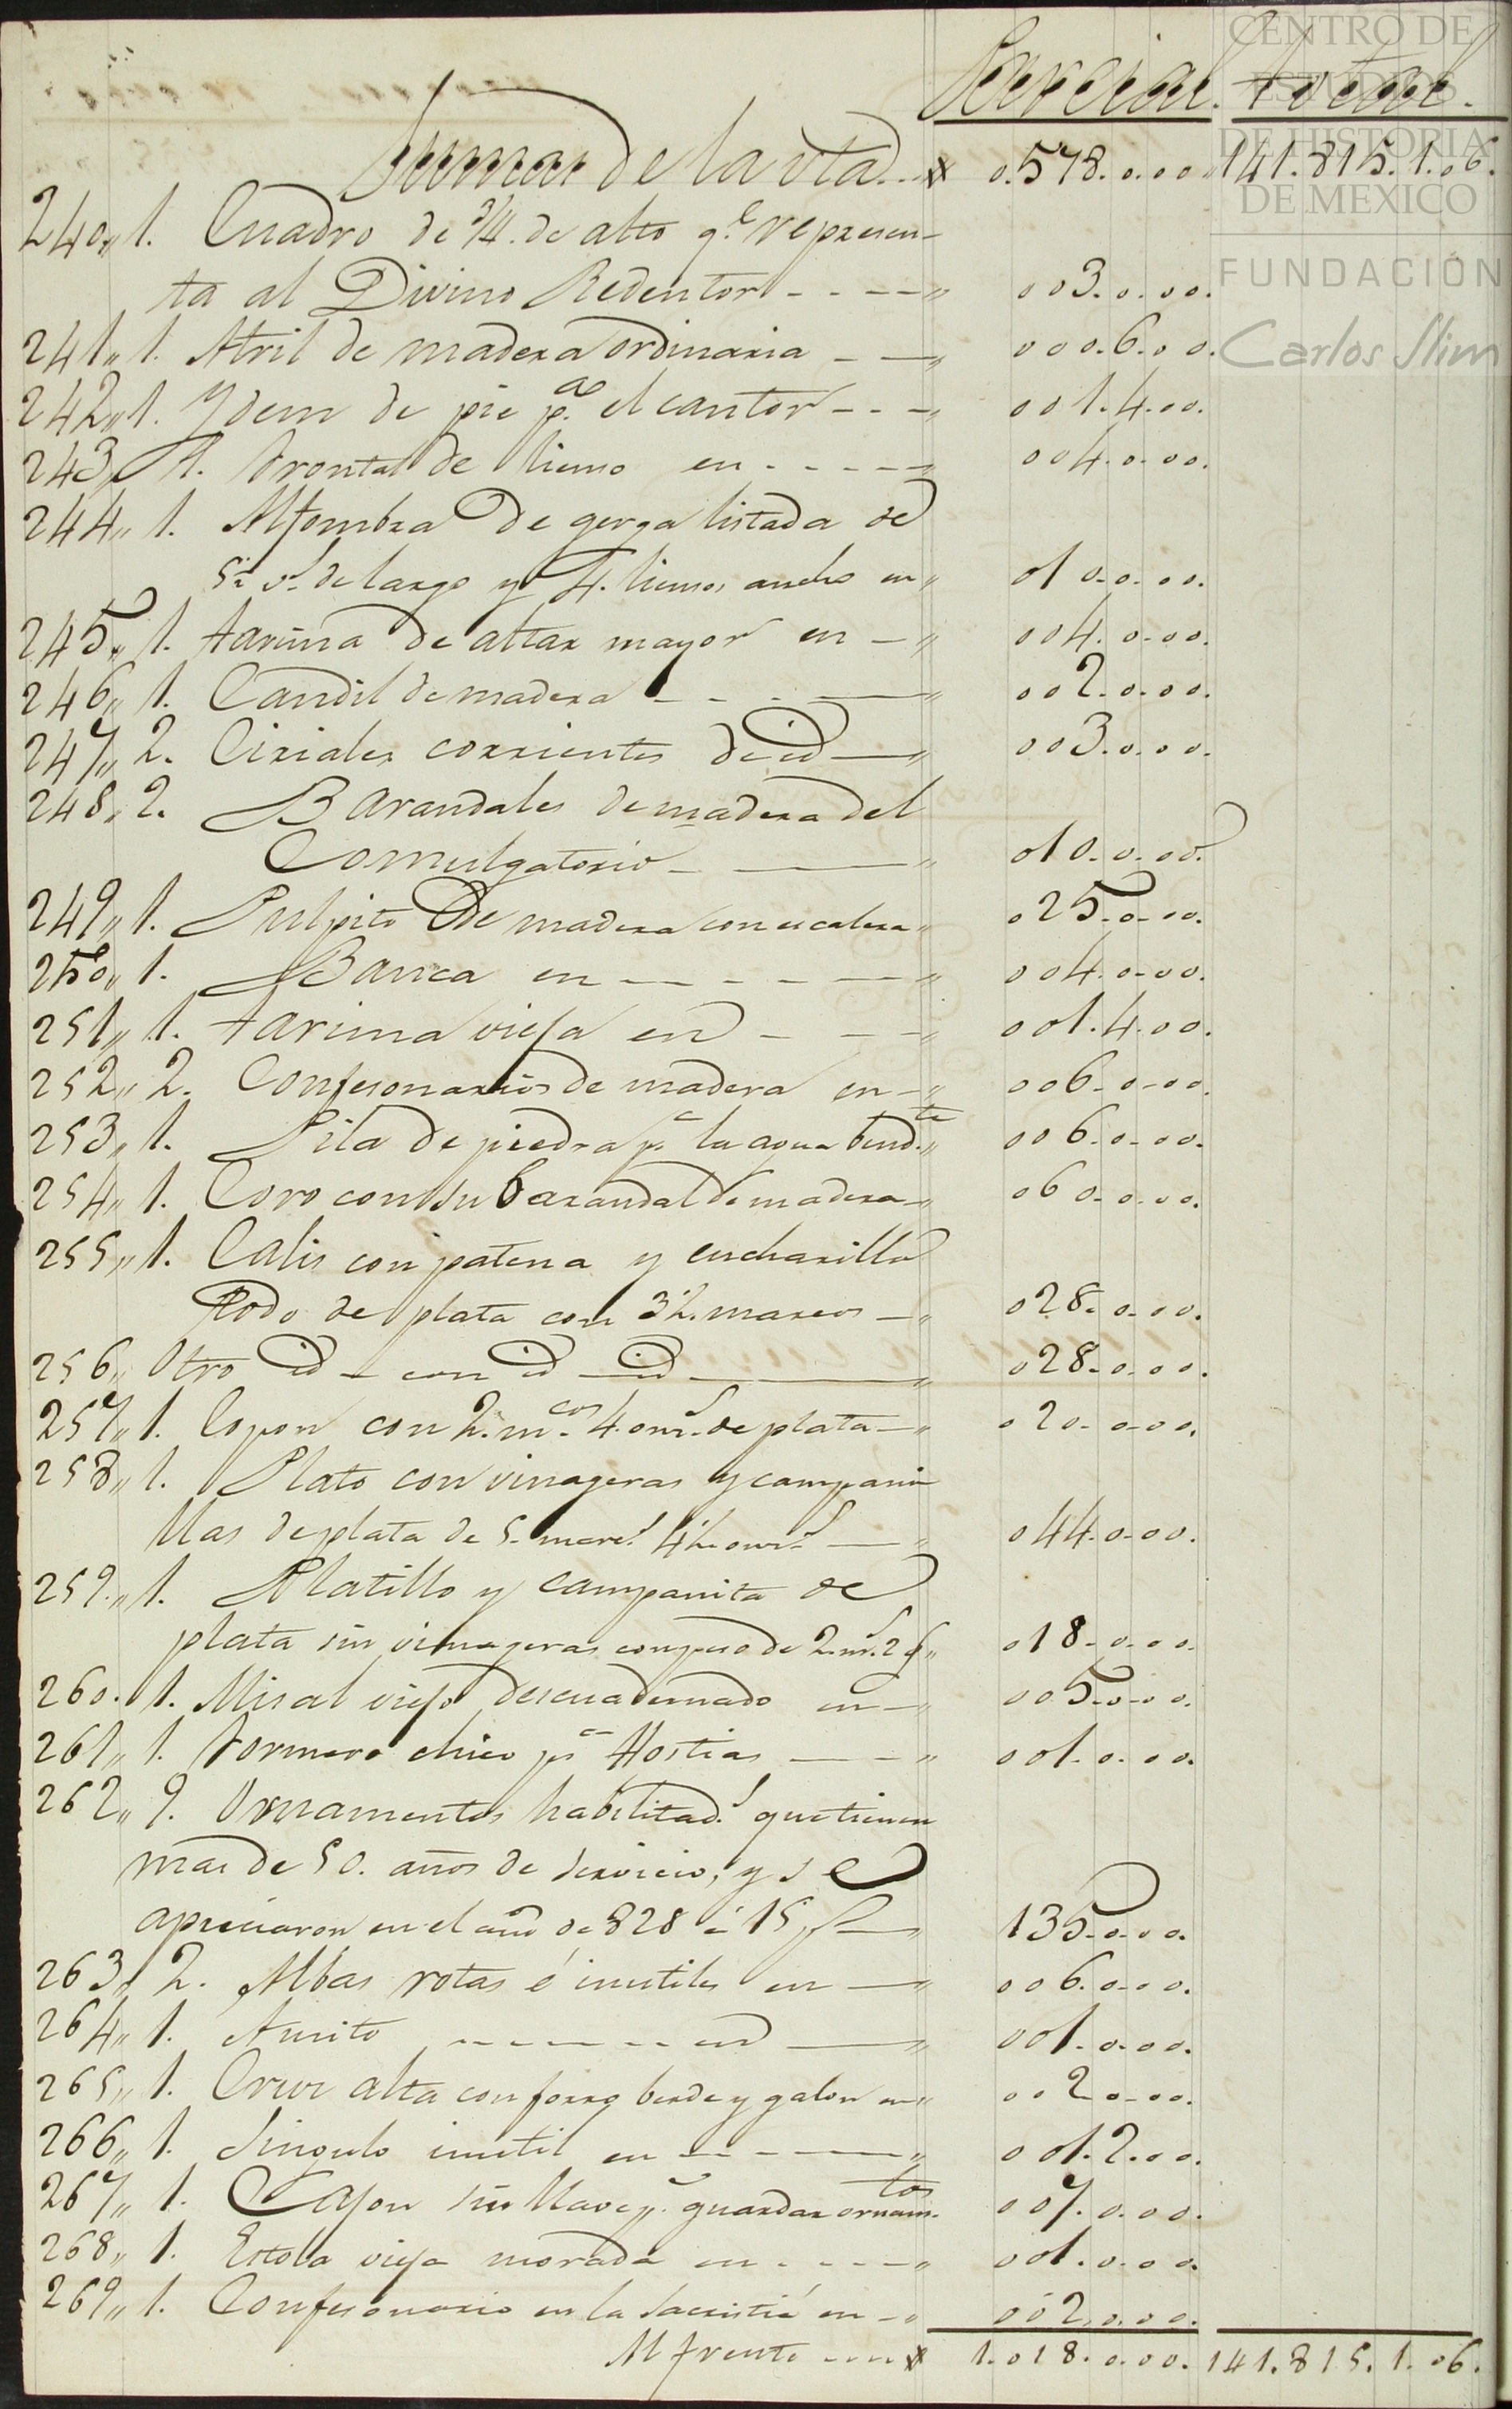 Parcial. total.
Suma de la vta... 0.578.0.00 141.815.1.06.
240,, 1. Cuadro de 3/4. de alto q.e represen-
ta al Divino Redentor - - - - ,, 003.0.00.
241,, 1. Atril de madera ordinaria - - ,, 000.6.00.
242,, 1. Ydem de pie p.a el cantor - - - ,, 001.4.00.
243,, 1. Frontal de lienso en - - - - - ,, 004.0.00.
244,, 1. Alfombra de gerga listada de
5 v.s de largo y 4. liensos ancho en ,, 010.0.00.
245,, 1. tarima de altar mayor en - ,, 004.0.00.
246,, 1. Candil de madera - - - - ,, 002.0.00.
247,, 2. Ciriales corrientes de id - ,, 003.0.00.
248,, 2. Barandales de madera del
Comulgatorio - - ,, 010.0.00.
249,, 1. Pulpito de madera con escalera ,, 025.0.00.
250,, 1. Banca en - - - - - ,, 004.0.00.
251,, 1. tarima vieja en - - - ,, 001.4.00.
252,, 2. Confesonarios de madera en - ,, 006.0.00.
253,, 1. Pila de piedra p.a la agua bend.ta ,, 006.0.00.
254,, 1. Coro con su barandal de madera - ,, 060.0.00.
255,, 1. Calis con patena y cucharilla
todo de plata con 3 1/2. marcos - ,, 028.0.00.
256,, Otro id - con id - id - ,, 028.0.00.
257,, 1. Copon con 2. m.cos 4. onz.s de plata - ,, 020.0.00.
258,, 1. Plato con vinageras y campani
llas de plata de 5. marc.s 4 1/2 onz.s - ,, 044.0.00.
259,, 1. Platillo y campanita de
plata sin vinageras con peso de 2. m.s 2 ,, 018.0.00.
260. 1. Misal viejo descuadernado en - ,, 005.0.00.
261,, 1. Formero chico p.a Hostias - - ,, 001.0.00.
262,, 9. Ornamentos habilitad.s que tienen
mas de 50. años de servicio, y se
apreciaron en el año de 828 á 15 p.s - ,, 135.0.00.
263,, 2. Albas rotas é inutiles en - ,, 006.0.00.
264,, 1. Amito - - - - - en - ,, 001.0.00.
265,, 1. Cruz alta con forro berde y galon en ,, 002.0.00.
266,, 1. Singulo inutil en - - - - ,, 001.2.00.
267,, 1. Cajon sin llave p.a guardar ornam.tos 007.0.00.
268,, 1. Estola vieja morada en - - - - ,, 001.0.00.
269,, 1. Confesonario en la Sacristiá en - ,, 002.0.00.
Al frente - - - 1.018.0.00. 141.815.1.06.
CENTRO DE
ESTUDIOS
DE HISTORIA
DE MEXICO
FUNDACIÓN
Carlos Slim